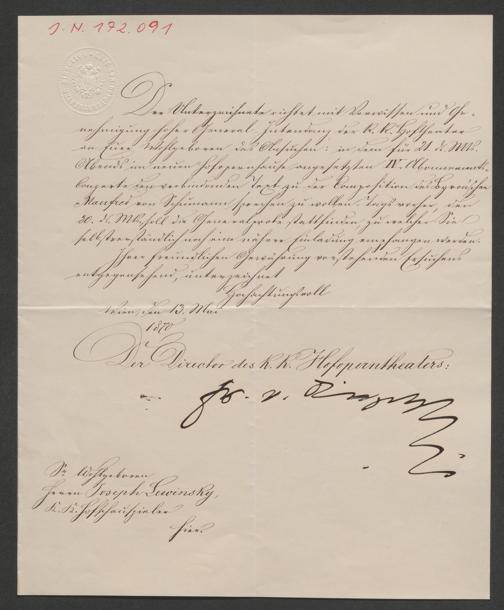 J.N. 172.091
Der Unterzeichnete richtet mit Vorwissen und Ge-
nehmigung hoher General Intendanz der k. k. Hoftheater
an Euer Wohlgeboren das Ansuchen: in dem für 21. d. Mts.
Abends im neuen Hofopernhause angesetzten IV. Abonnements-
Concerte den verbindenden Text zu der Composition des Byron'schen
Manfred von Schumann sprechen zu wollen. Tags vorher den
20. d. Mts. soll die Generalprobe stattfinden, zu welcher Sie
selbstverständlich noch eine nähere Einladung empfangen werden.
Ihrer freundlichen Gewährung vorstehenden Ersuchens
entgegensehend, unterzeichnet
Hochachtungsvoll
Wien, den 13. Mai
1870
Der Director des k. k. Hofoperntheaters:
Fr. v. Dingelstedt
Sr. Wohlgeboren
Herrn Joseph Lewinsky,
K. K. Hofschauspieler
hier.